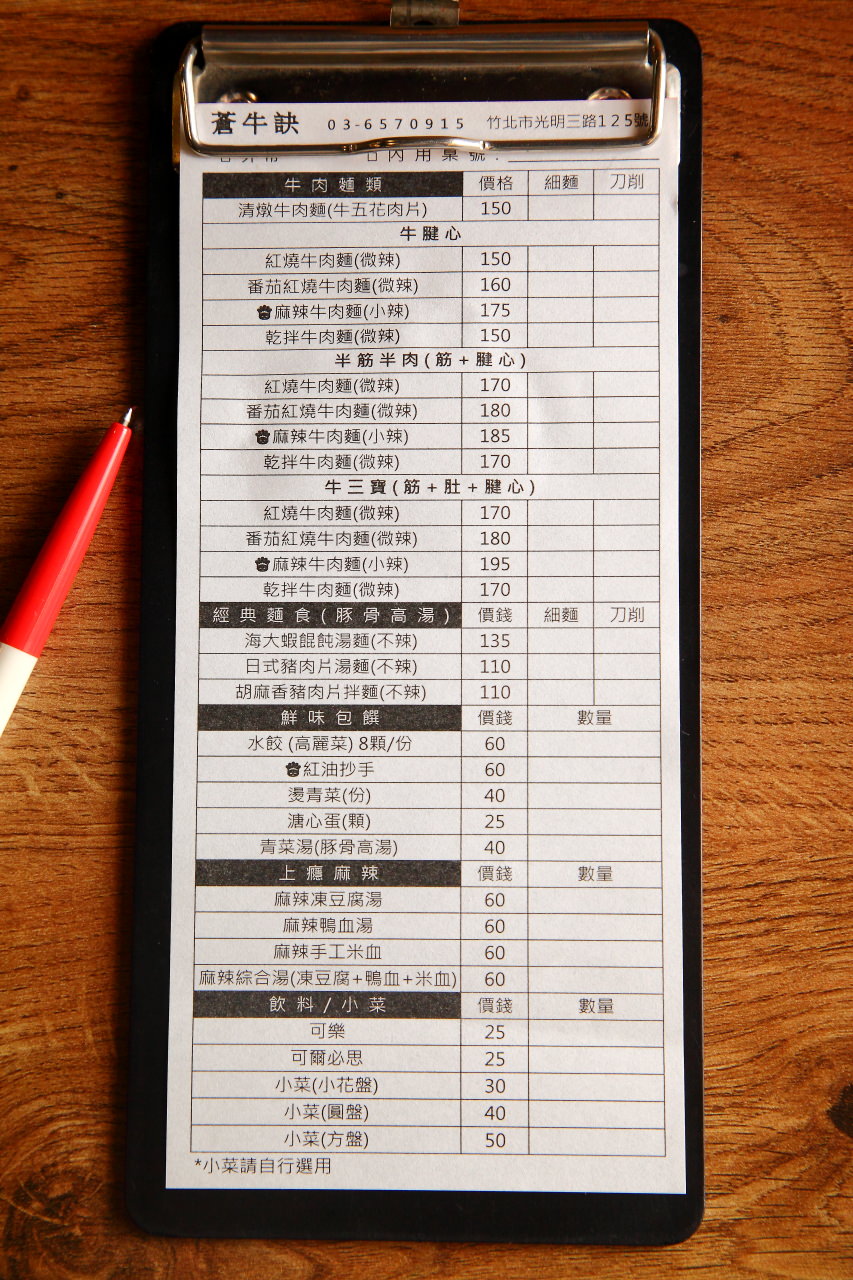 蒼牛訣 03-6570915 竹北市光明三路125號
內用桌號:
牛肉麵類 價格 細麵 刀削
清燉牛肉麵(牛五花肉片) 150
牛腱心
紅燒牛肉麵(微辣) 150
番茄紅燒牛肉麵(微辣) 160
麻辣牛肉麵(小辣) 175
乾拌牛肉麵(微辣) 150
半筋半肉(筋+腱心)
紅燒牛肉麵(微辣) 170
番茄紅燒牛肉麵(微辣) 180
麻辣牛肉麵(小辣) 185
乾拌牛肉麵(微辣) 170
牛三寶(筋+肚+腱心)
紅燒牛肉麵(微辣) 170
番茄紅燒牛肉麵(微辣) 180
麻辣牛肉麵(小辣) 195
乾拌牛肉麵(微辣) 170
經典麵食(豚骨高湯) 價錢 細麵 刀削
海大蝦餛飩湯麵(不辣) 135
日式豬肉片湯麵(不辣) 110
胡麻香豬肉片拌麵(不辣) 110
鮮味包饌 價錢 數量
水餃(高麗菜)8顆/份 60
紅油抄手 60
燙青菜(份) 40
溏心蛋(顆) 25
青菜湯(豚骨高湯) 40
上癮麻辣 價錢 數量
麻辣凍豆腐湯 60
麻辣鴨血湯 60
麻辣手工米血 60
麻辣綜合湯(凍豆腐+鴨血+米血) 60
飲料/小菜 價錢 數量
可樂 25
可爾必思 25
小菜(小花盤) 30
小菜(圓盤) 40
小菜(方盤) 50
*小菜請自行選用